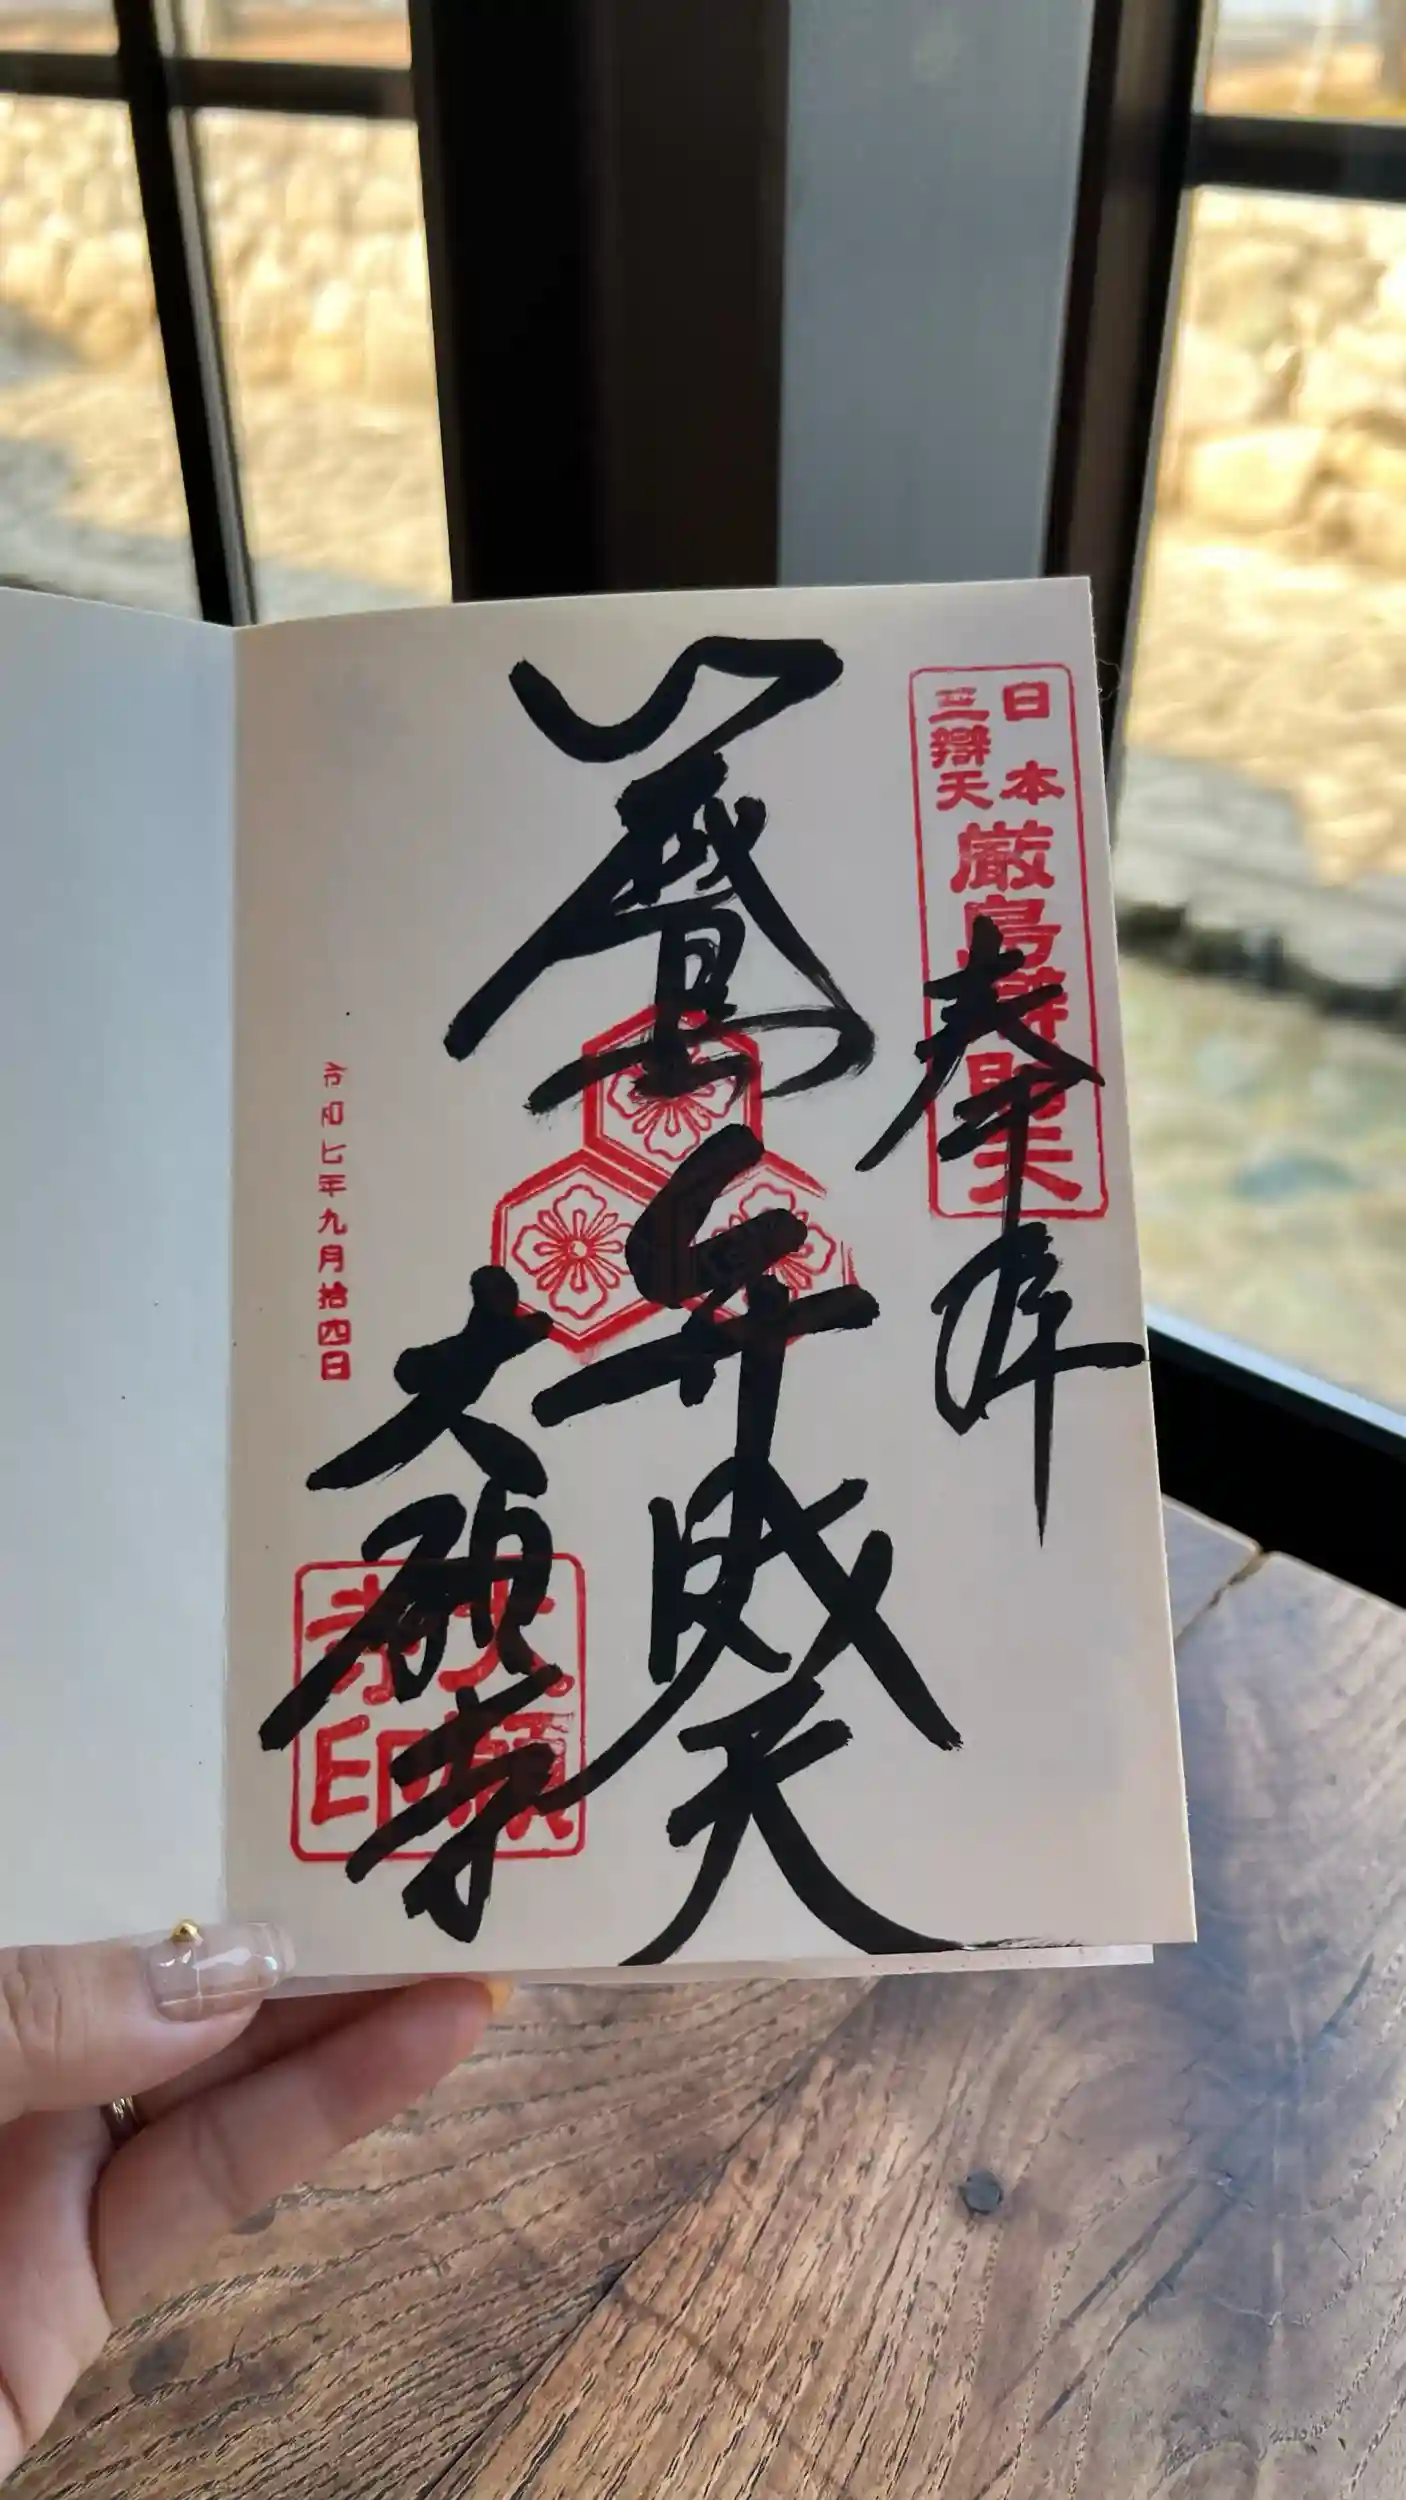 日本
三辯天
厳島辯財天
奉拝
厳島弁財天
大願寺
大願
寺印
令和七年九月拾四日